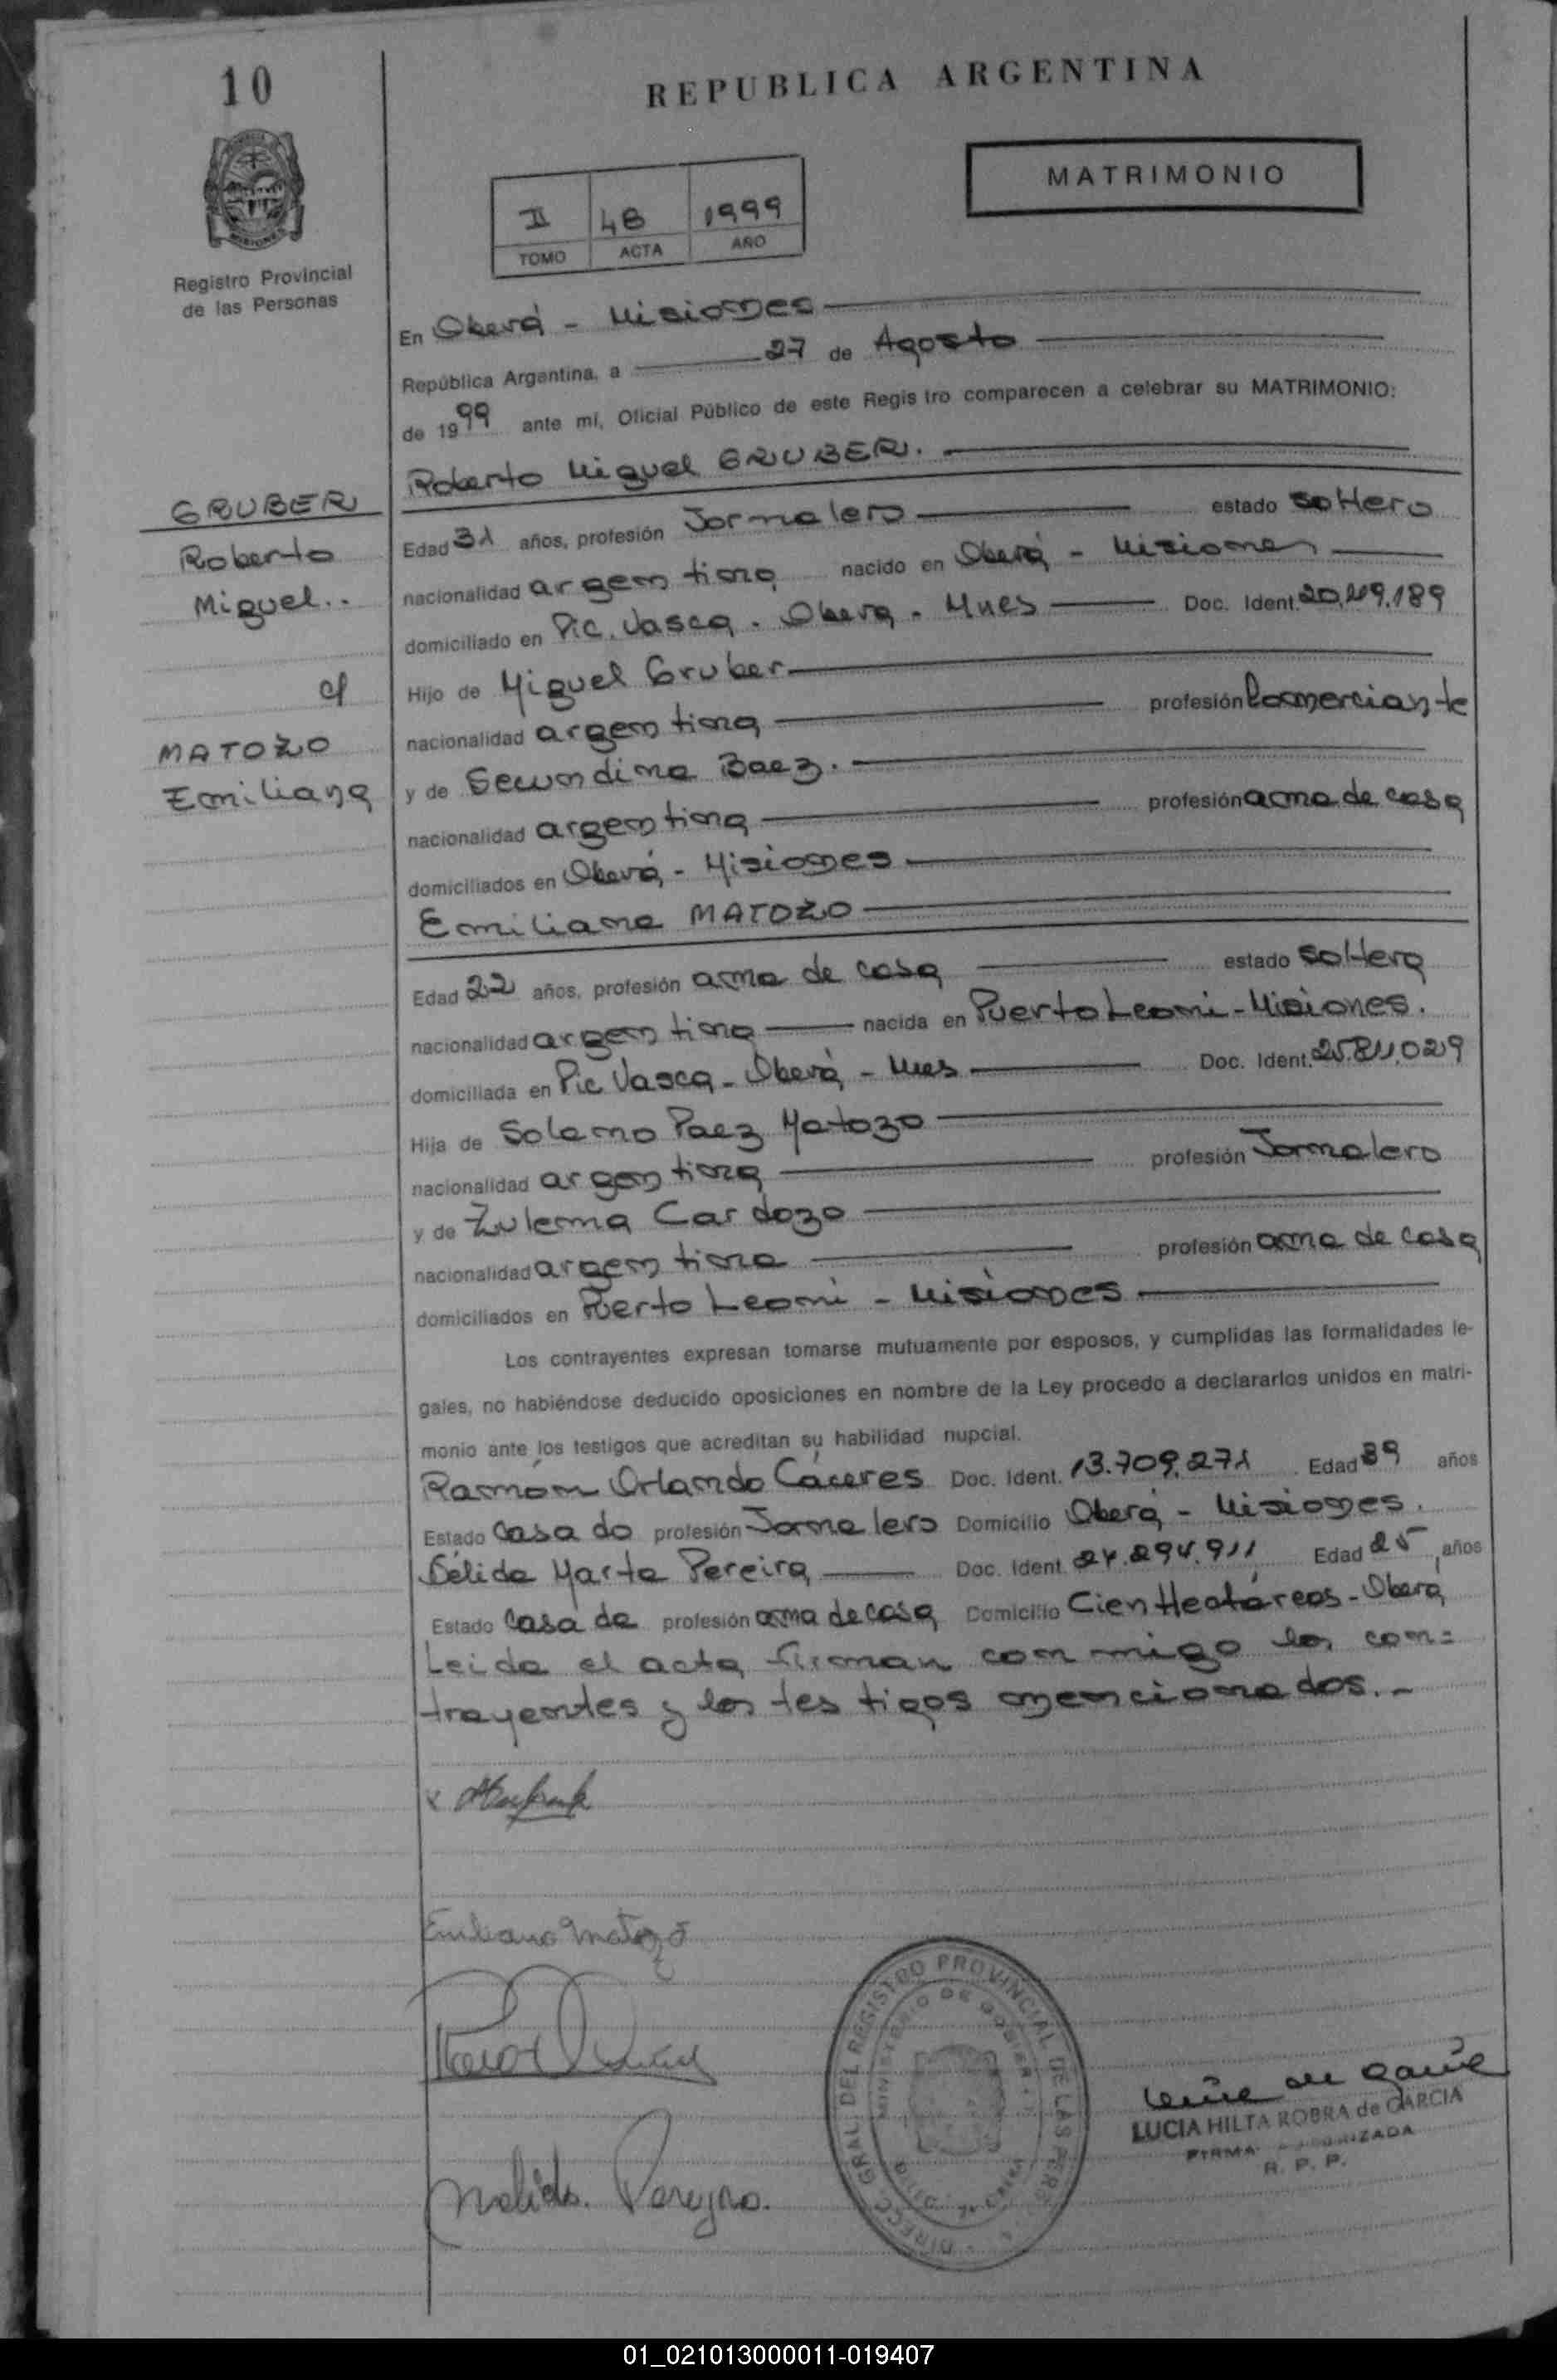 10
REPUBLICA ARGENTINA
MATRIMONIO
II 48 1999
TOMO ACTA AÑO
Registro Provincial
de las Personas
En Oberá - Misiones
República Argentina, a 27 de Agosto
de 1999 ante mí, Oficial Público de este Registro comparecen a celebrar su MATRIMONIO:
Roberto Miguel GRUBER.
GRUBER
Roberto
Miguel..
c/
MATOZO
Emiliana
Edad 31 años, profesión Jornalero estado soltero
nacionalidad argentina nacido en Oberá - Misiones
domiciliado en Pic. Vasca. Oberá - Mnes Doc. Ident.
Hijo de Miguel Gruber
nacionalidad argentina profesión Comerciante
y de Secundina Baez.
nacionalidad argentina profesión ama de casa
domiciliados en Oberá - Misiones
Emiliana MATOZO
Edad 22 años, profesión ama de casa estado soltera
nacionalidad argentina nacida en Puerto Leoni - Misiones.
domiciliada en Pic Vasca - Oberá - Mnes Doc. Ident.
Hija de Solano Paez Matozo
nacionalidad argentina profesión Jornalero
y de Zulema Cardozo
nacionalidad argentina profesión ama de casa
domiciliados en Puerto Leoni - Misiones
Los contrayentes expresan tomarse mutuamente por esposos, y cumplidas las formalidades le-
gales, no habiéndose deducido oposiciones en nombre de la Ley procedo a declararlos unidos en matri-
monio ante los testigos que acreditan su habilidad nupcial.
Ramón Orlando Cáceres Doc. Ident. 13.709.271 Edad 39 años
Estado Casado profesión Jornalero Domicilio Oberá - Misiones.
Délida Marta Pereira Doc. Ident. 24.294.911 Edad 25 años
Estado Casada profesión ama de casa Domicilio Cien Hectáreas - Oberá
Leida el acta firman conmigo los con=
trayentes y los testigos mencionados.-
x
Emiliana Matozo
Nelida. Pereyra.
DIRECC. GRAL. DEL REGISTRO PROVINCIAL DE LAS PERS.
MINISTERIO DE GOBIER
LUCIA HILTA ROBRA de GARCIA
FIRMA AUTORIZADA
R. P. P.
01_021013000011-019407